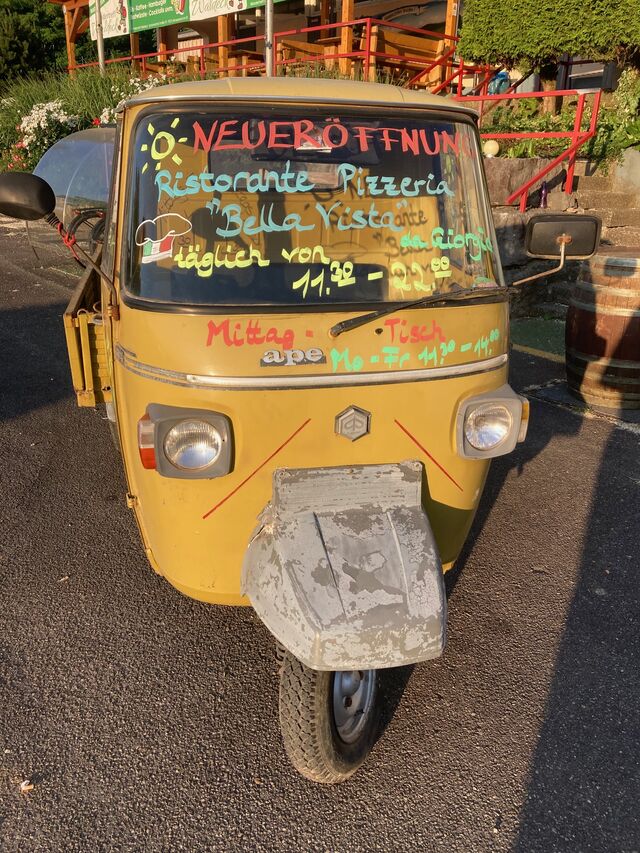 NEUERÖFFNUNG
Ristorante Pizzeria
"Bella Vista"
da Giorgio
täglich von
11.30 - 22.00
Mittag - Tisch
ape
Mo - Fr 11.30 - 14.00